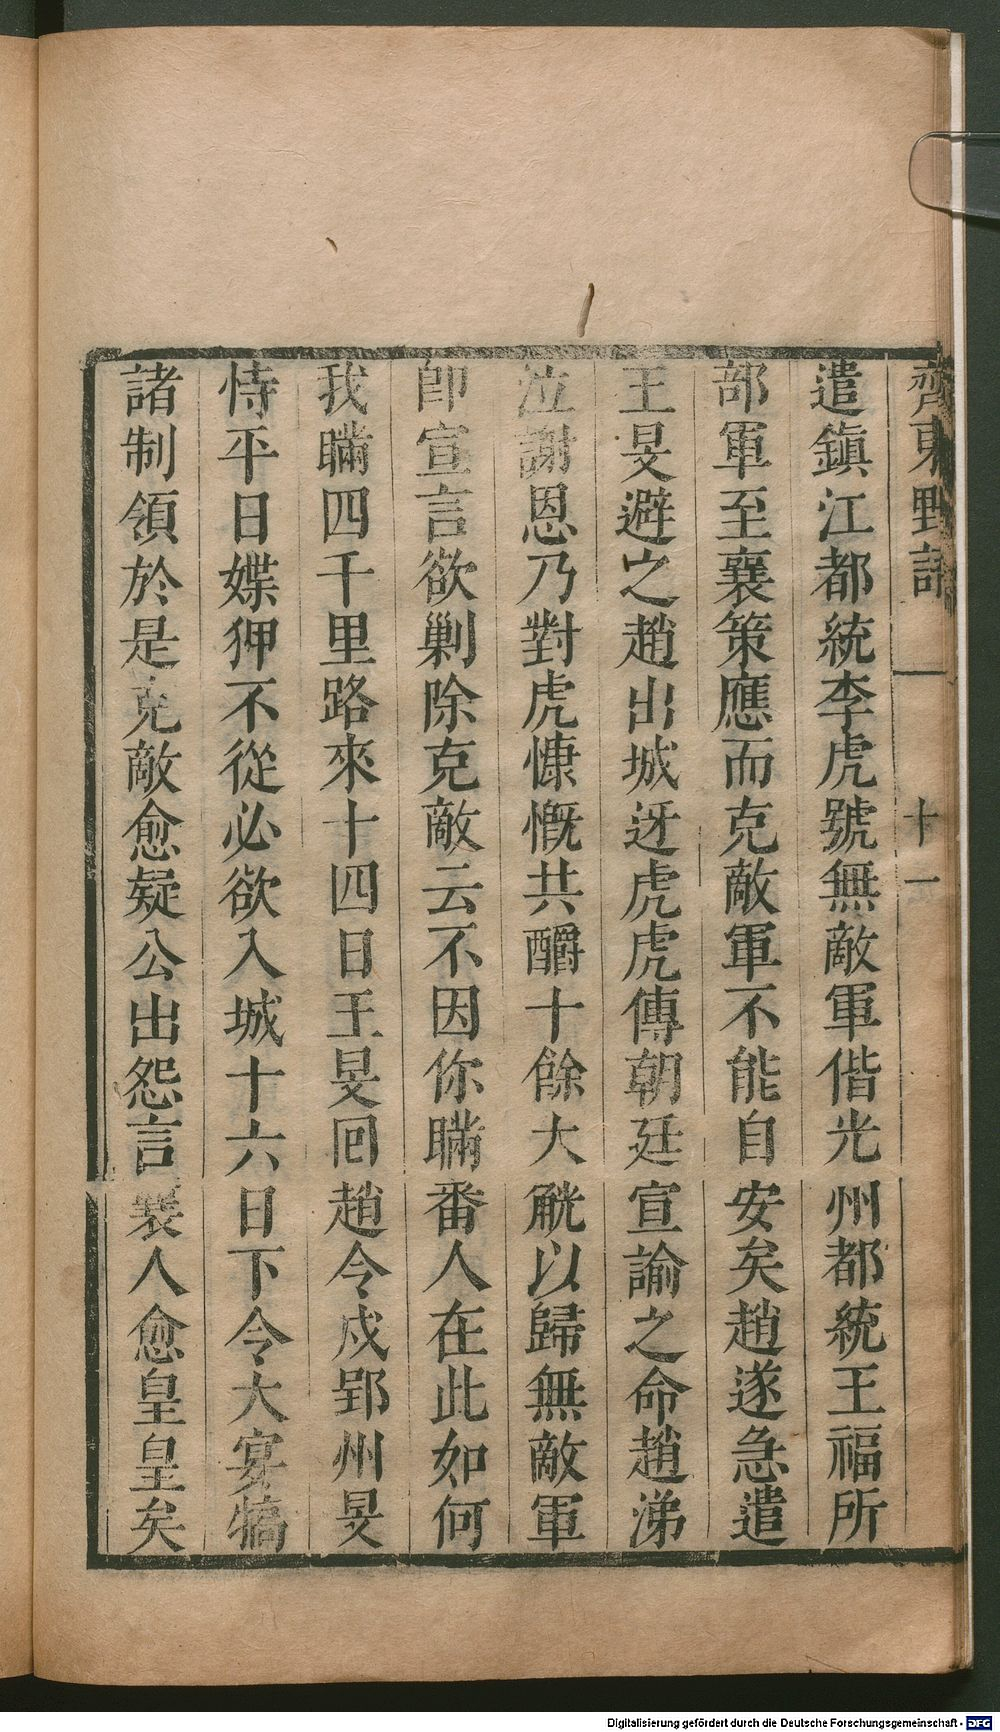 齊東野語 一 十一
遣鎭江都統李虎號無敵軍偕光州都統王福所
部軍至襄策應而克敵軍不能自安矣趙遂急遣
王旻避之趙出城迓虎虎傳朝廷宣諭之命趙涕
泣謝恩乃對虎慷慨共釂十餘大觥以歸無敵軍
卽宣言欲剿除克敵云不因你瞞番人在此如何
我瞞四千里路來十四日王旻囘趙令戍郢州旻
恃平日媟狎不從必欲入城十六日下令大宴犒
諸制領於是克敵愈疑公出怨言襄人愈皇皇矣
Digitalisierung gefördert durch die Deutsche Forschungsgemeinschaft - DFG